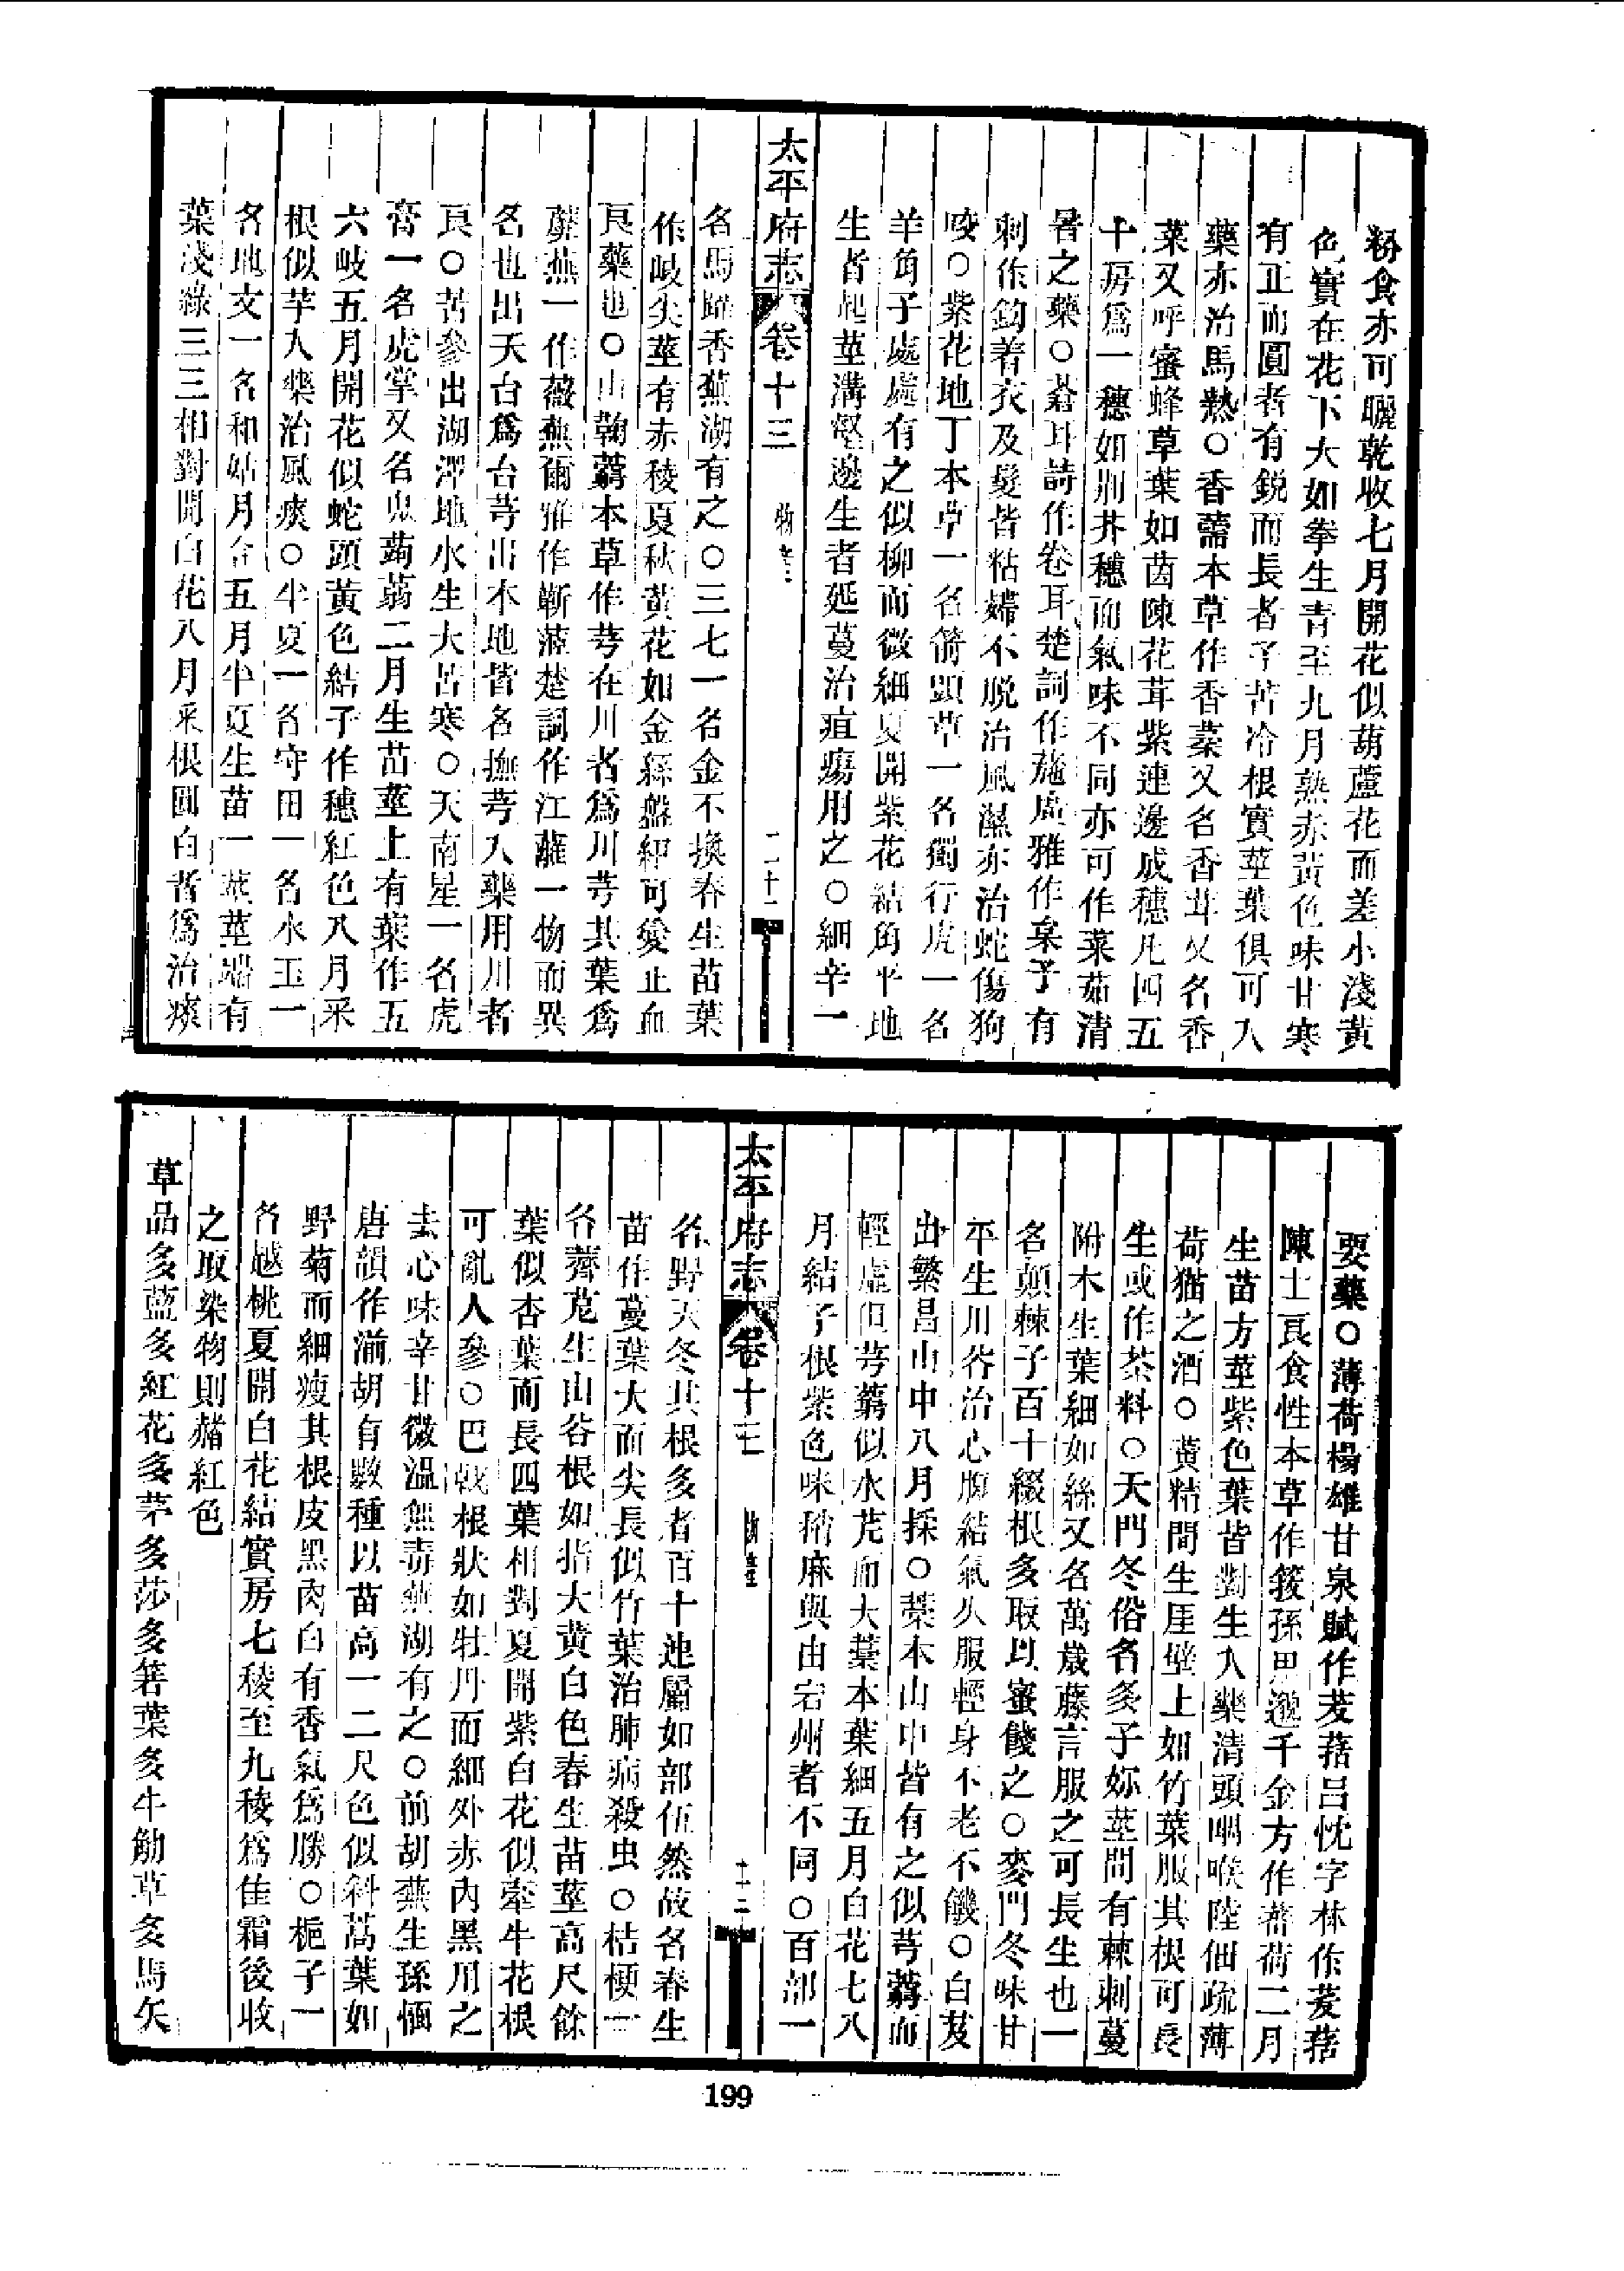 粉食亦可曬乾收七月開花似葫蘆花而差小淺黃
色實在花下大如拳生青至九月熟赤黃色味甘寒
有正而圓者有銳而長者子苦冷根實莖葉俱可入
藥亦治馬熱○香薷本草作香葇又名香茸又名香
菜又呼蜜蜂草葉如茵陳花茸紫連邊成穗凡四五
十房爲一穗如荆芥穗而氣味不同亦可作菜茹清
暑之藥○蒼耳詩作卷耳楚詞作葹廣雅作枲子有
刺作鈎着衣及髮皆粘嫷不脫治風濕亦治蛇傷狗
咬○紫花地丁本草一名箭頭草一名獨行虎一名
羊角子處處有之似柳而微細夏開紫花結角平地
生者起莖溝壑邊生者延蔓治疽瘍用之○細辛一
太平府志 卷十三 物產 二十一
名馬蹄香蕪湖有之○三七一名金不換春生苗葉
作岐尖莖有赤稜夏秋黃花如金絲盤紐可愛止血
良藥也○山鞠藭本草作芎在川者爲川芎其葉爲
蘼蕪一作薇蕪爾雅作蘄茝楚詞作江蘺一物而異
名也出天台爲台芎出本地皆名撫芎入藥用川者
良○苦參出湖潭地水生大苦寒○天南星一名虎
膏一名虎掌又名鬼蒟蒻二月生苗莖上有葉作五
六岐五月開花似蛇頭黃色結子作穗紅色八月采
根似芋入藥治風痰○半夏一名守田一名水玉一
名地文一名和姑月令五月半夏生苗一莖莖端有
葉淺綠三三相對開白花八月采根圓白者爲治痰
要藥○薄荷楊雄甘泉賦作茇䔖吕忱字林作茇䔖
陳士良食性本草作菝孫思邈千金方作蕃荷二月
生苗方莖紫色葉皆對生入藥清頭咽喉陸佃疏薄
荷猫之酒○黃精間生崖壁上如竹葉服其根可長
生或作茶料○天門冬俗名多子妳莖間有棘刺蔓
附木生葉細如絲又名萬歲藤言服之可長生也一
名顛棘子百十綴根多取以蜜餞之○麥門冬味甘
平生川谷治心腹結氣久服輕身不老不饑○白芨
出繁昌山中八月採○藁本山中皆有之似芎藭而
輕虛但芎藭似水芹而大藁本葉細五月白花七八
月結子根紫色味稍麻與由宕州者不同○百部一
太平府志 卷十三 物產 二十二
名野天冬其根多者百十連屬如部伍然故名春生
苗作蔓葉大而尖長似竹葉治肺病殺虫○桔梗一
名薺苨生山谷根如指大黄白色春生苗莖高尺餘
葉似杏葉而長四葉相對夏開紫白花似牽牛花根
可亂人參○巴戟根狀如牡丹而細外赤內黑用之
去心味辛甘微溫無毒蕪湖有之○前胡蕪生孫愐
唐韻作湔胡有數種以苗高一二尺色似斜蒿葉如
野菊而細瘦其根皮黑肉白有香氣爲勝○梔子一
名越桃夏開白花結實房七稜至九稜爲佳霜後收
之取染物則赭紅色
草品多藍多紅花多茅多莎多箬葉多牛觔草多馬矢
199